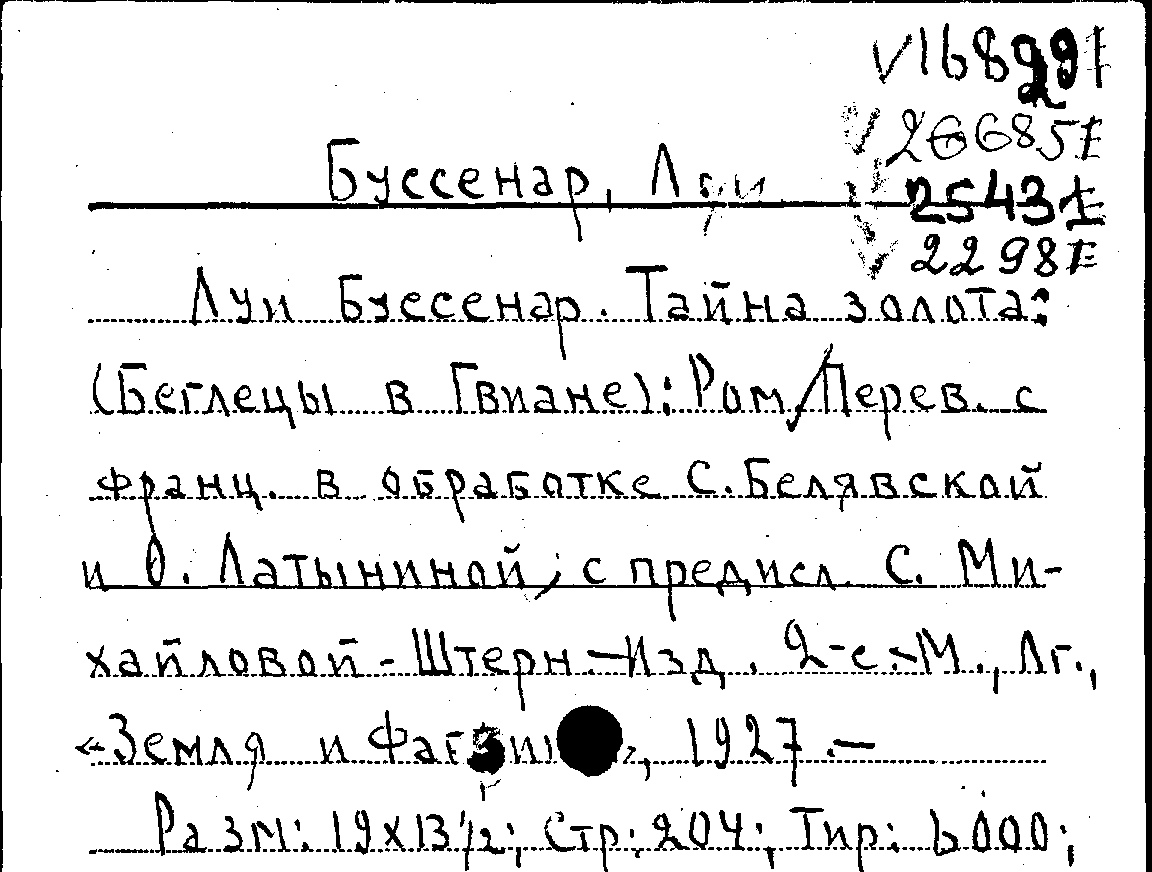 16899I
26685I
Буссенар, Луи
25431
2298I
Луи Буссенар. Тайна золота:
(Беглецы в Гвиане): Ром/Перев. с
франц. в обработке С. Белявской
и О. Латыниной; с предисл. С. Ми-
хайловой-Штерн.—Изд. 2-е.-М., Лг.,
«Земля и 1927.—
Разм: 19х13½; Стр: 204; Тир: 6000;